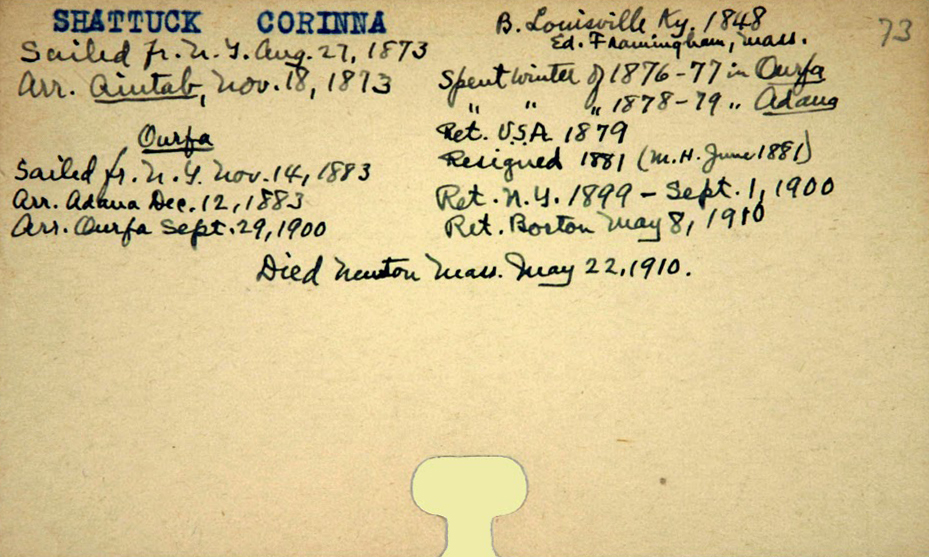 SHATTUCK CORINNA
B. Louisville Ky, 1848
73
Ed. Framingham, Mass.
Sailed fr. N.Y. Aug. 27, 1873
Arr. Aintab, Nov. 18, 1873
Spent winter of 1876-77 in Ourfa
" " " 1878-79 " Adana
Ret. U.S.A. 1879
Resigned 1881 (M.H. June 1881)
Ourfa
Sailed fr. N.Y. Nov. 14, 1883
Arr. Adana Dec. 12, 1883
Arr. Ourfa Sept. 29, 1900
Ret. N.Y. 1899 - Sept. 1, 1900
Ret. Boston May 8, 1910
Died Newton Mass. May 22, 1910.